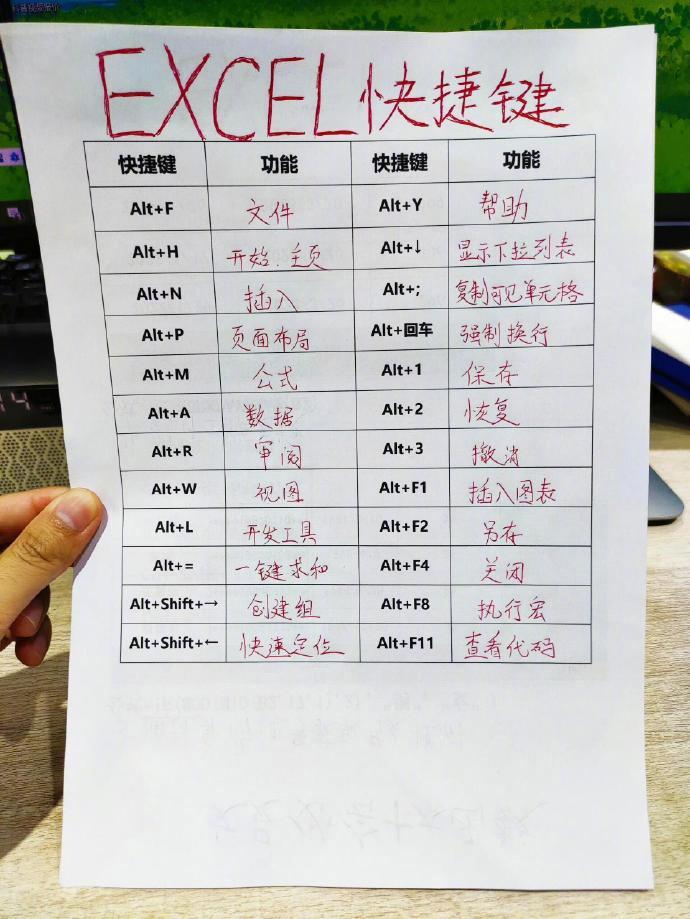 科普视频报价
EXCEL快捷键
快捷键 功能 快捷键 功能
Alt+F 文件 Alt+Y 帮助
Alt+H 开始.主页 Alt+↓ 显示下拉列表
Alt+N 插入 Alt+; 复制可见单元格
Alt+P 页面布局 Alt+回车 强制换行
Alt+M 公式 Alt+1 保存
Alt+A 数据 Alt+2 恢复
Alt+R 审阅 Alt+3 撤消
Alt+W 视图 Alt+F1 插入图表
Alt+L 开发工具 Alt+F2 另存
Alt+= 一键求和 Alt+F4 关闭
Alt+Shift+→ 创建组 Alt+F8 执行宏
Alt+Shift+← 快速定位 Alt+F11 查看代码